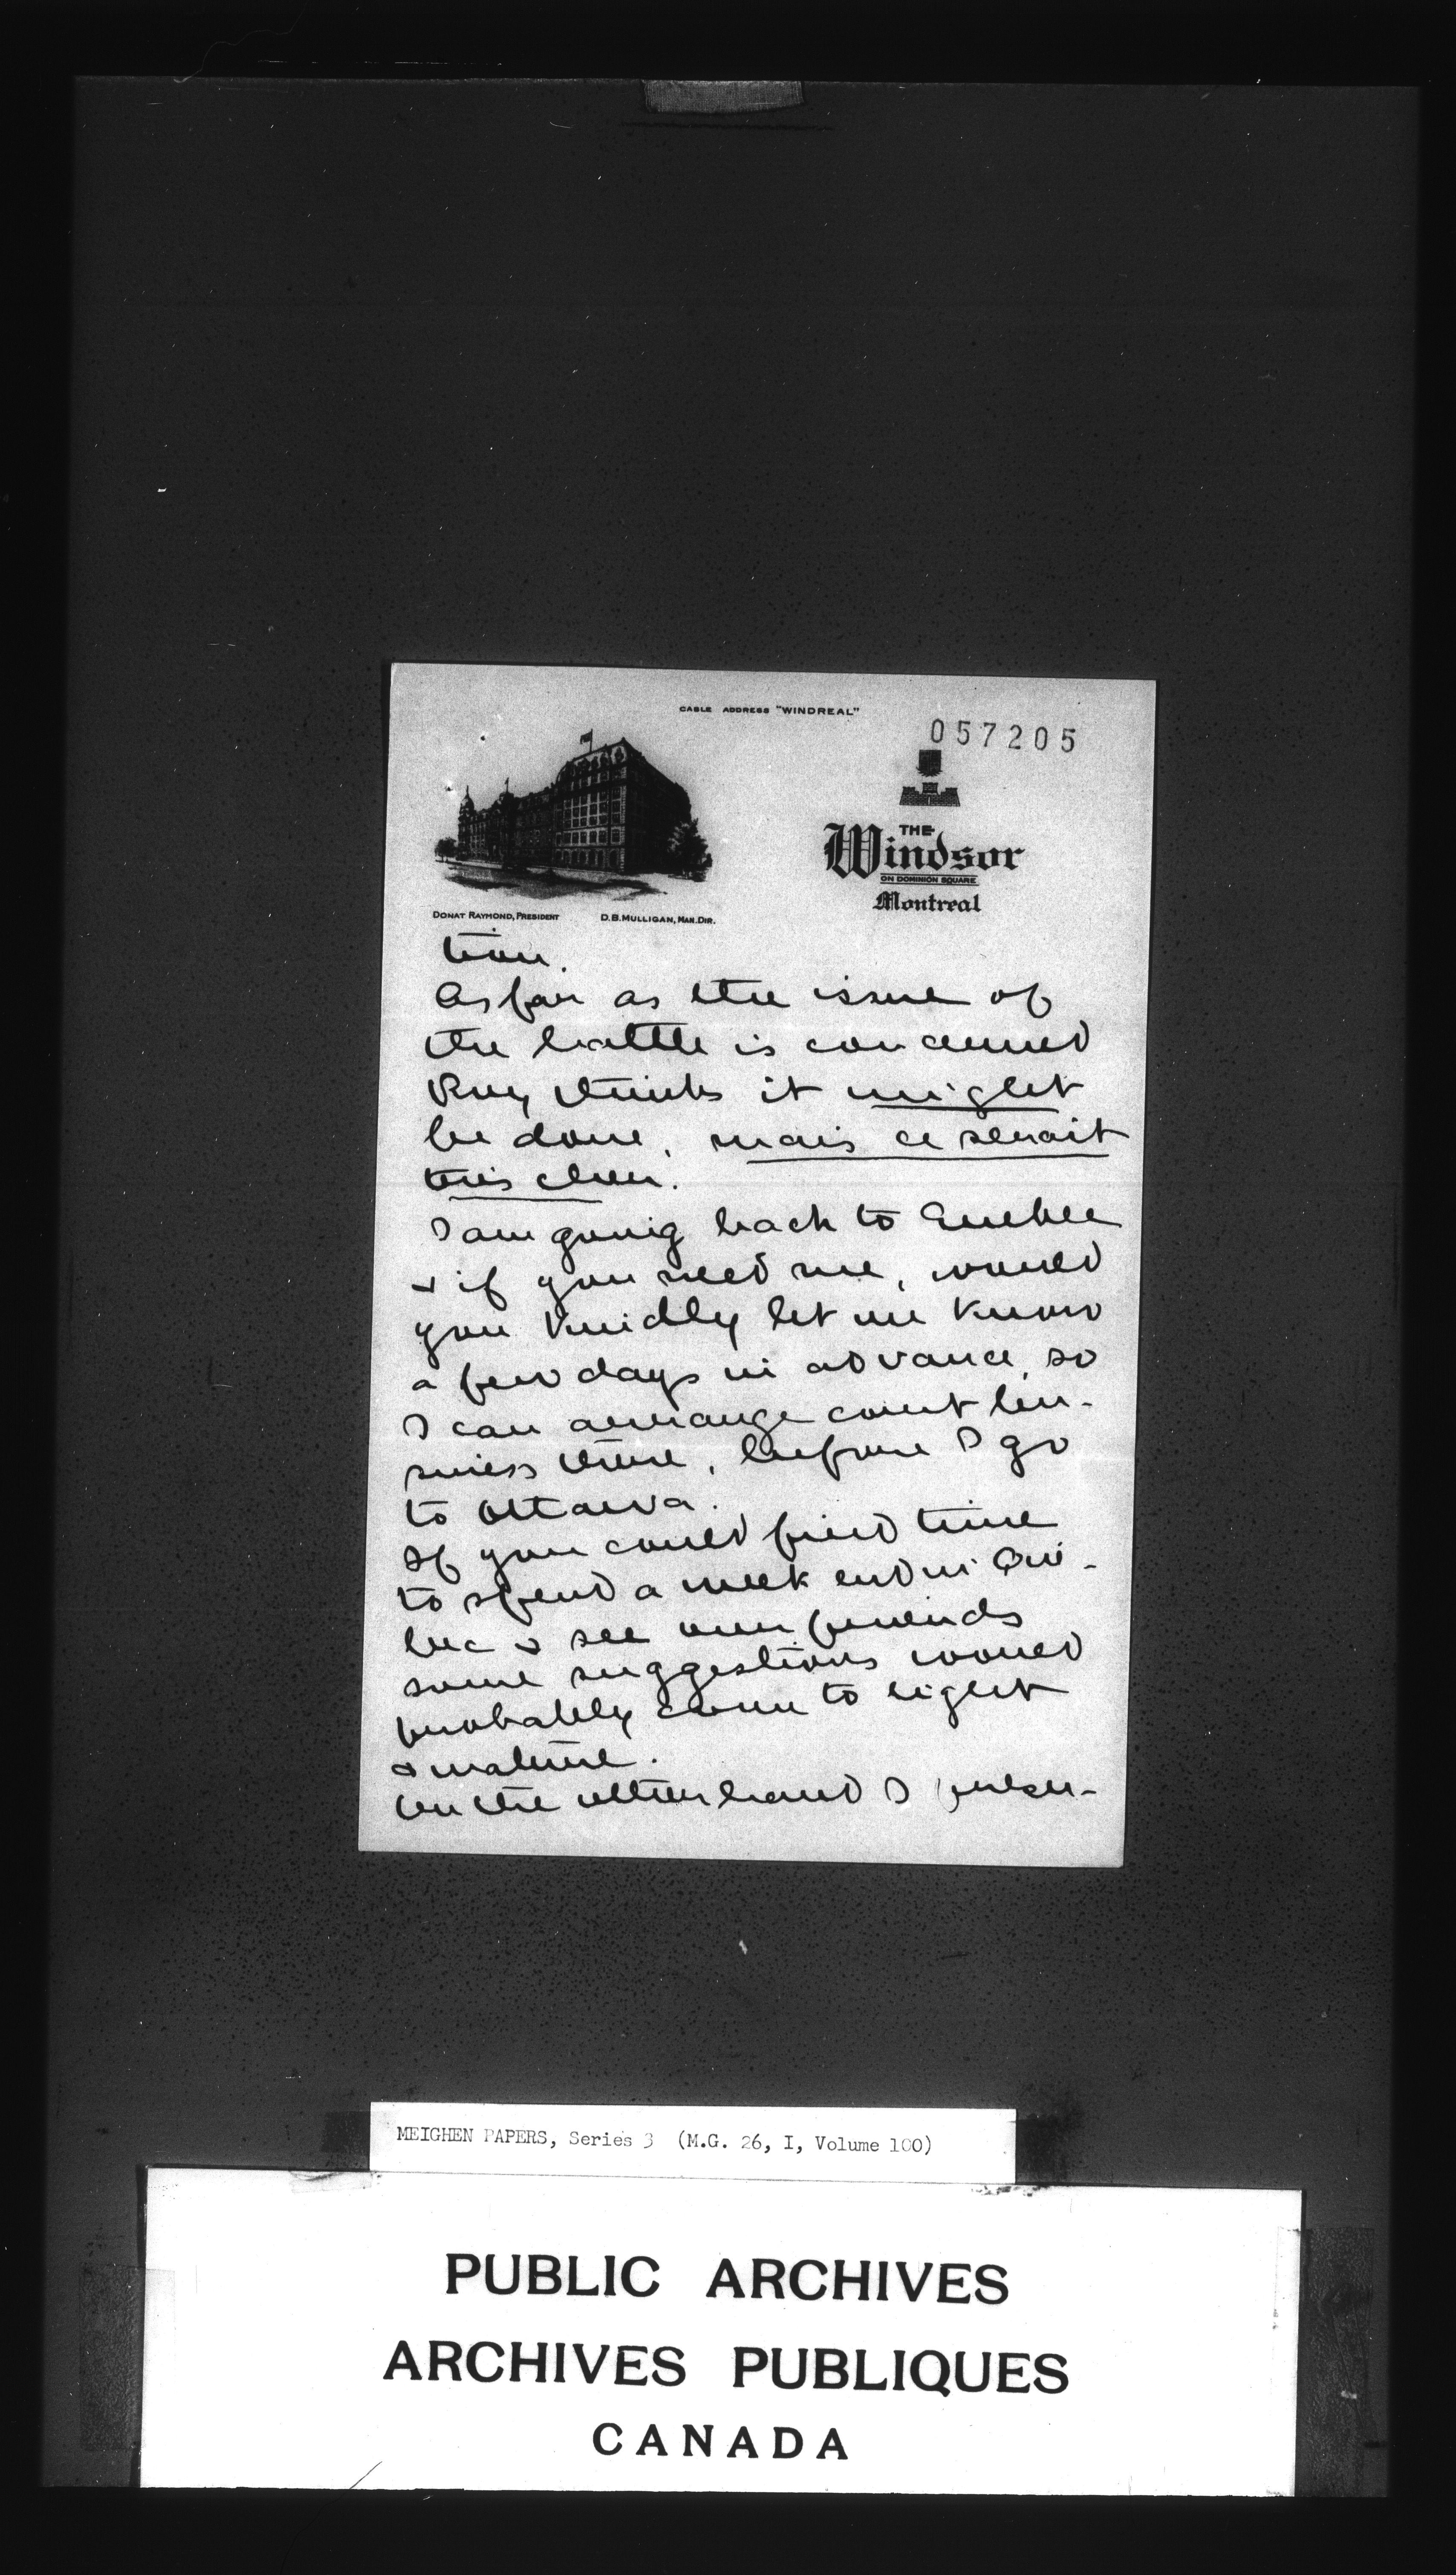 CABLE ADDRESS "WINDREAL"
057205
THE
Windsor
ON DOMINION SQUARE
Montreal
DONAT RAYMOND, PRESIDENT D.B. MULLIGAN, MAN. DIR.
tion.
As far as the issue of
the battle is concerned
Roy thinks it might
be done, mais ce serait
très cher.
I am going back to Quebec
& if you need me, would
you kindly let me know
a few days in advance, so
I can arrange court bu-
siness there, before I go
to Ottawa.
If you could find time
to spend a week end in Que-
bec & see our friends
some suggestions would
probably come to light
& mature.
On the other hand I
MEIGHEN PAPERS, Series 3 (M.G. 26, I, Volume 100)
PUBLIC ARCHIVES
ARCHIVES PUBLIQUES
CANADA